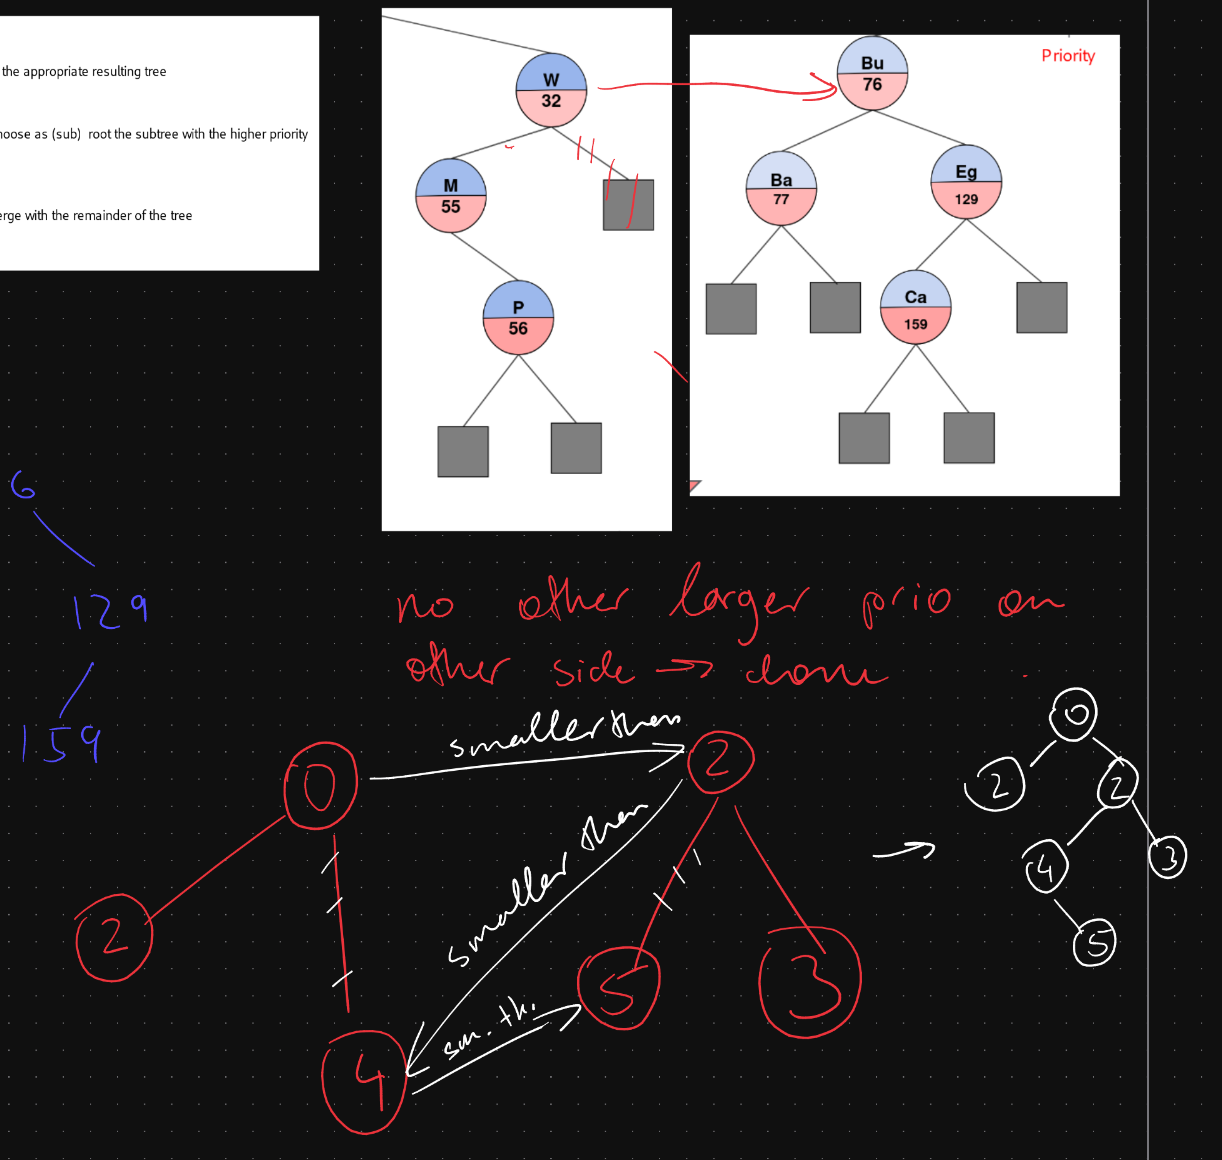 the appropriate resulting tree
hoose as (sub) root the subtree with the higher priority
erge with the remainder of the tree
W
32
M
55
P
56
Priority
Bu
76
Ba
77
Eg
129
Ca
159
6
129
159
no other larger prio on
other side → done
0
smaller then
2
smaller then
2
5
3
sm. th.
4
→
0
2
2
4
3
5